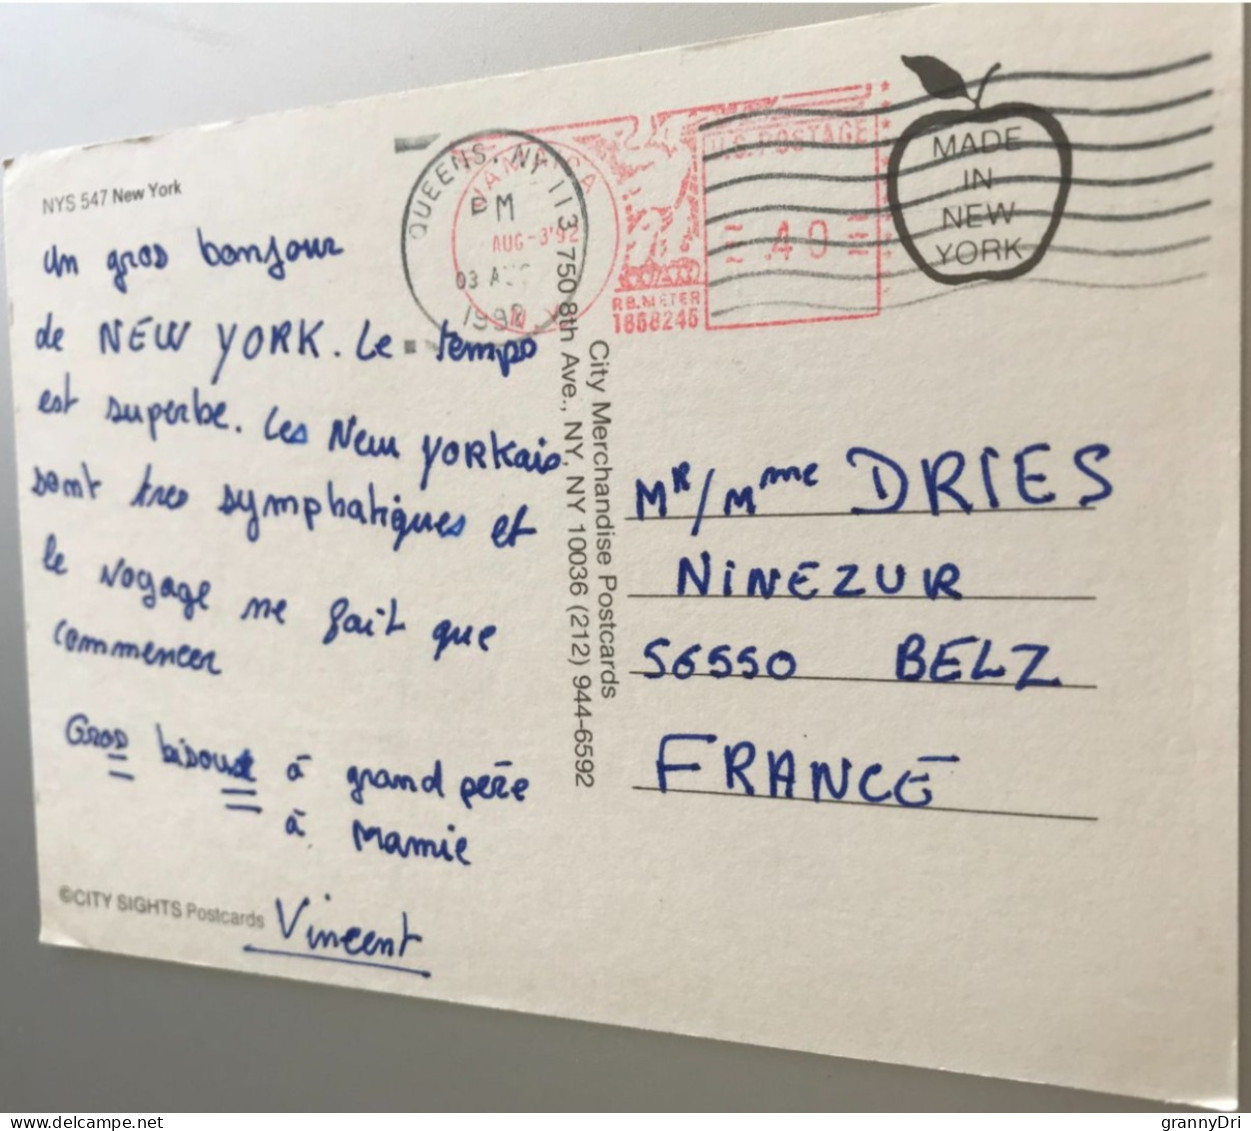 NYS 547 New York
Un gros bonjour
de NEW YORK. Le temps
est superbe. Les New YORKais
sont tres symphatiques et
le voyage ne fait que
commencer
Gros bisoux à grand père
à Mamie
Vincent
©CITY SIGHTS Postcards
City Merchandise Postcards
750 8th Ave., NY, NY 10036 (212) 944-6592
QUEENS, NY 113
PM
03 AUG
1992
JAMAICA
AUG-3'92
N.Y.
R.B. METER
1868246
U.S. POSTAGE
.40
MADE
IN
NEW
YORK
MR/Mme DRIES
NINEZUR
56550 BELZ
FRANCE
delcampe.net
grannyDri